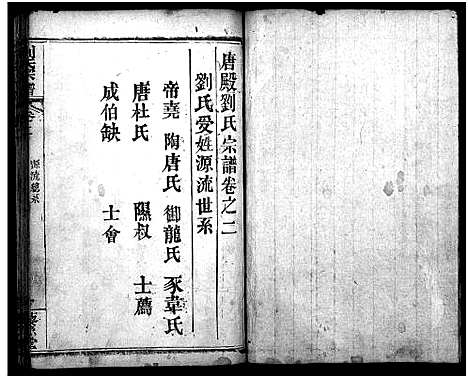 唐殿劉氏宗譜卷之二
劉氏受姓源流世系
帝堯 陶唐氏 御龍氏 豕韋氏
唐杜氏 隰叔 士蒍
成伯缺 士會
源流總系